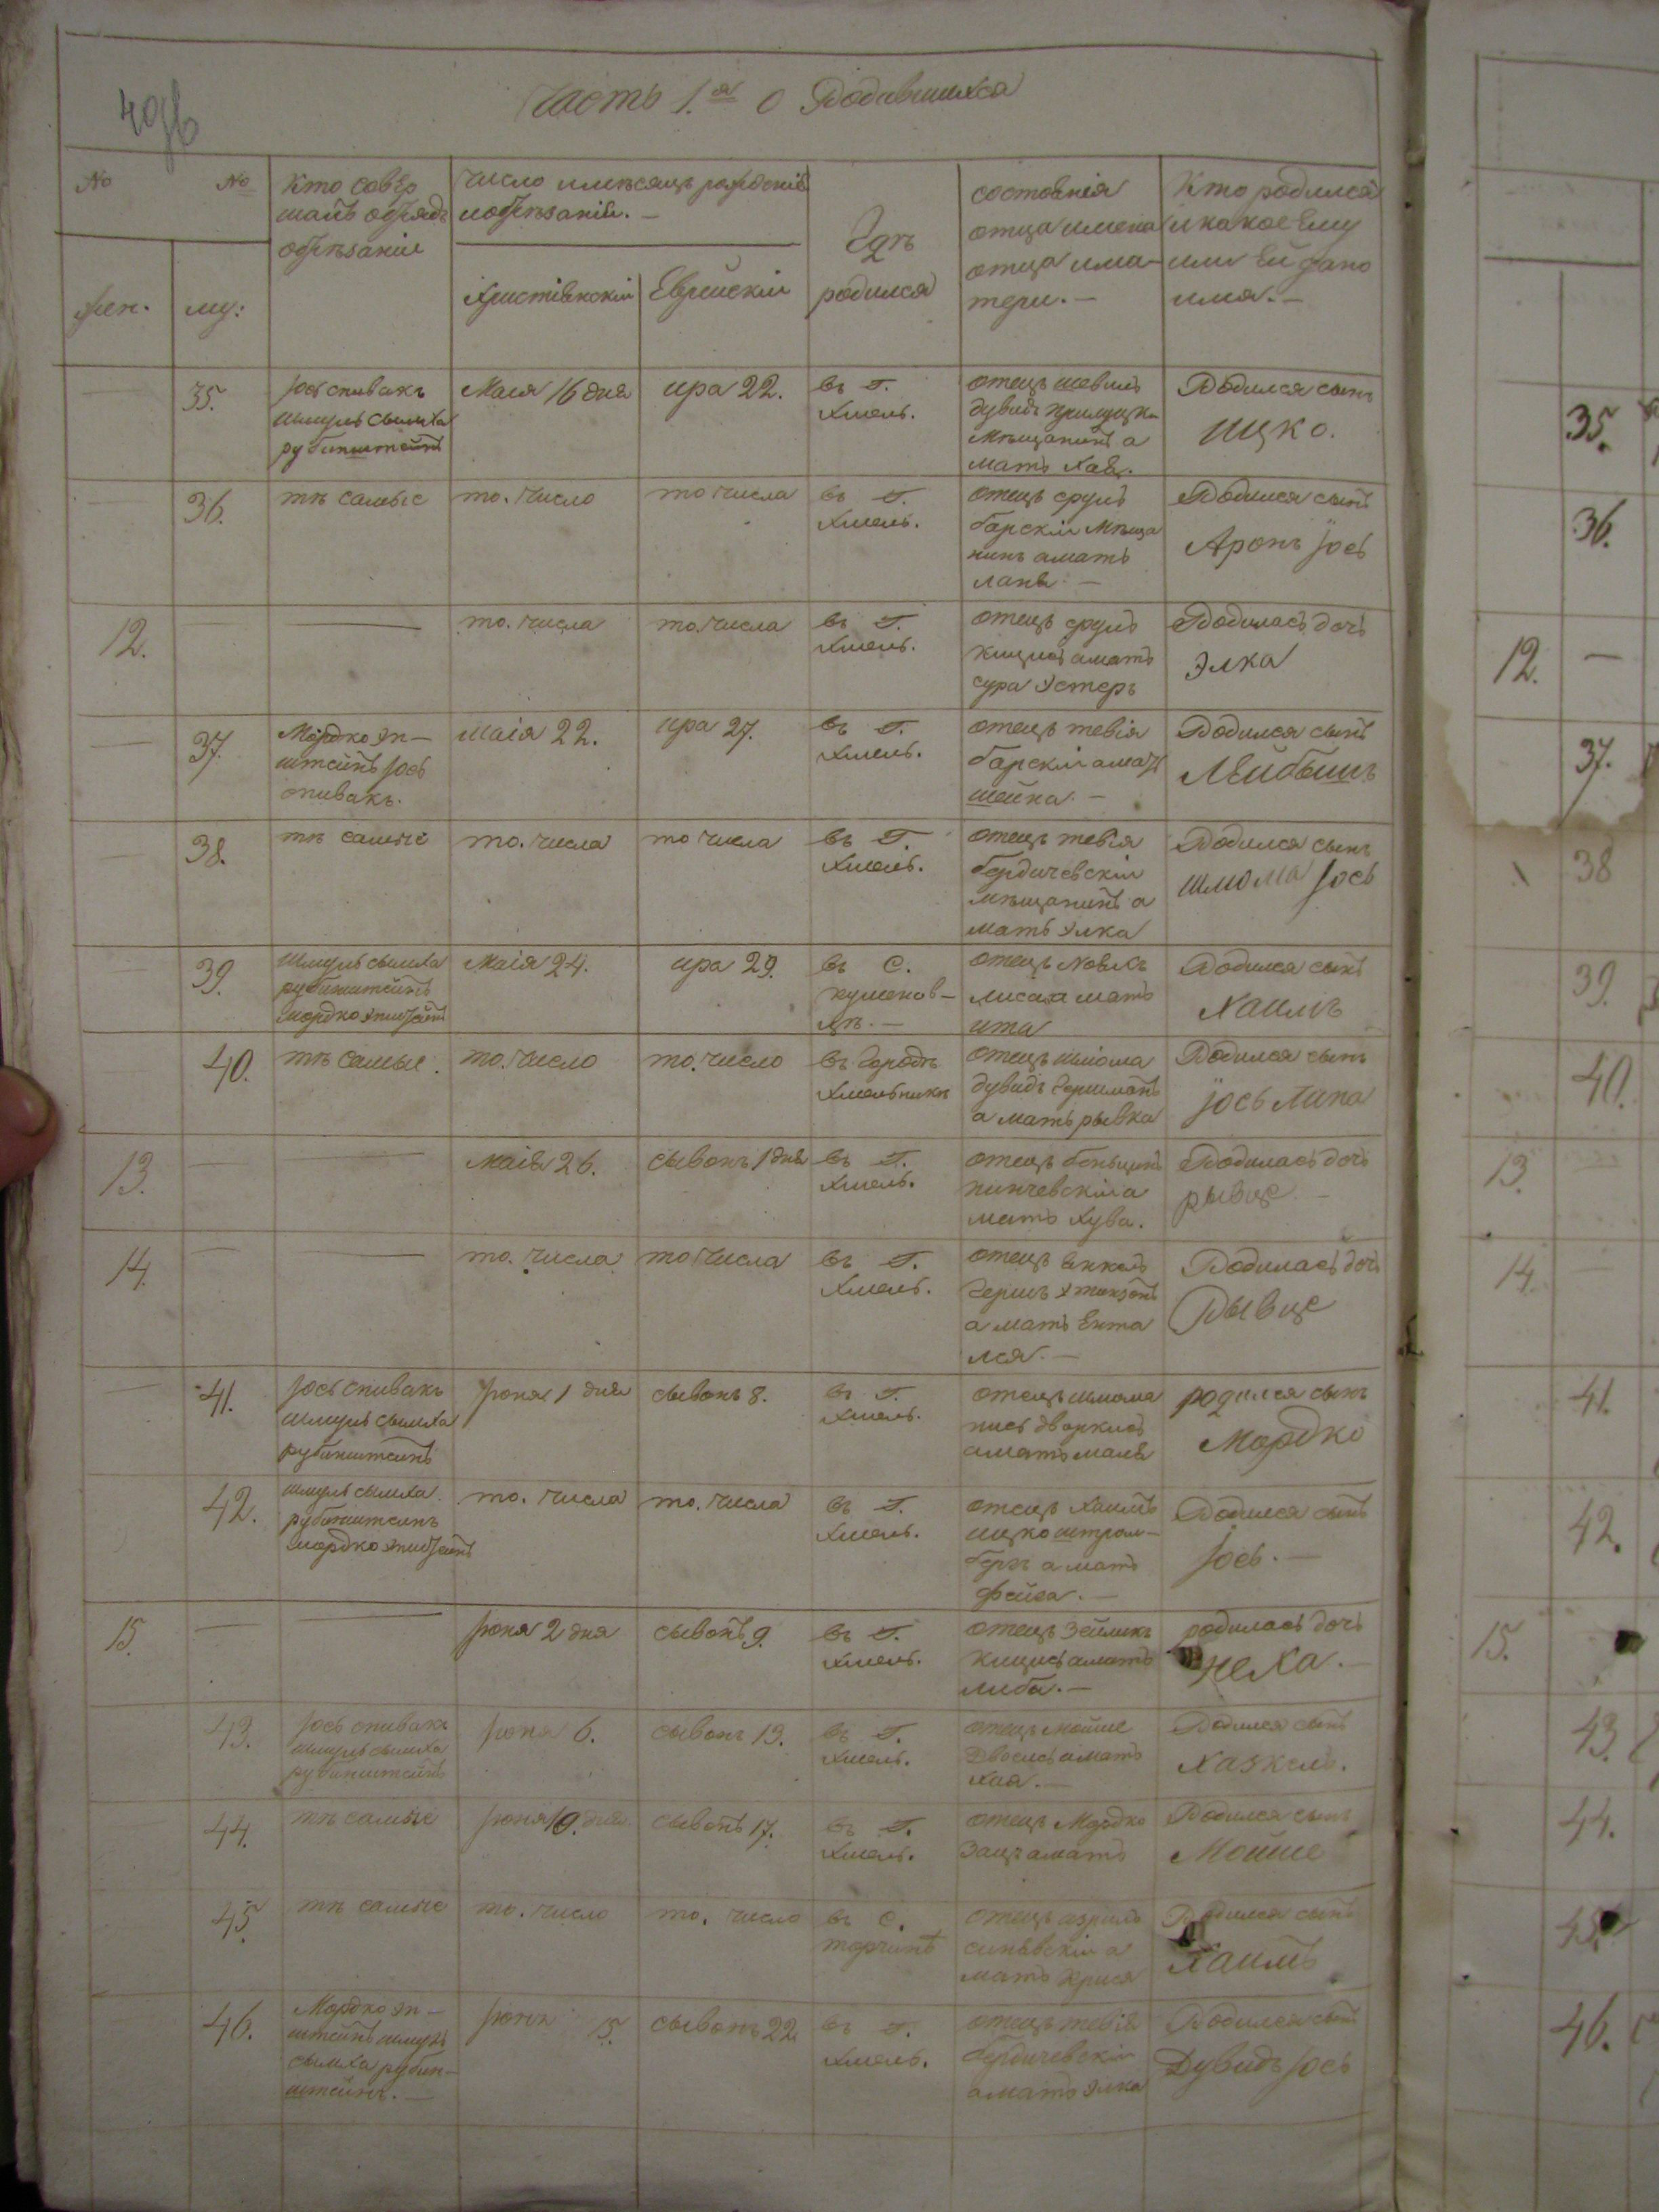 Часть 1.я о Родившихся
№ №
Кто совер
шалъ обрядъ
обрѣзанія
число и мѣсяцъ рожденія
и обрѣзанія. —
Христіянскій
Еврейскій
Гдѣ
родился
состоянія
отца имена
отца и ма-
тери. —
Кто родился
и какое Ему
или Ей дано
имя. —
жен.
му:
— 35.
Іось спивакъ
Шмуль сымха
рубинштейнъ
Маія 16 дня
ира 22.
въ Г.
Хмель.
отецъ
дувидъ
Мѣщанинъ а
мать Хая.
Родился сынъ
Ицко.
— 36.
тѣ самые
то. число
то числа
въ Г.
Хмель.
отецъ сруль
барскій мѣща
нинъ а мать
Родился сынъ
Аронъ Іось
12. —
то. числа
то. числа
въ Г.
Хмель.
отецъ сруль
кицись а мать
сура эстеръ
Родилась дочь
Элка
— 37.
Мордко эп-
штейнъ Іось
спивакъ.
маія 22.
ира 27.
въ Г.
Хмель.
отецъ тевія
барскій а мать
шейна. —
Родился сынъ
Лейбышъ
— 38.
тѣ самые
то. числа
то числа
въ Г.
Хмель.
отецъ тевія
бердичевскій
мѣщанинъ а
мать Элка
Родился сынъ
шлиома Іось
39.
Шмуль сымха
рубинштейнъ
мордко эпштейнъ
Маія 24.
ира 29.
въ С.
куманов-
цѣ. —
отецъ
мать
ита
Родился сынъ
Хаимъ
40.
тѣ самые.
то. число
то. число
въ городѣ
Хмельникѣ
отецъ шлиома
дувидъ гершманъ
а мать рывка
Родился сынъ
Іось липа
13. — —
маія 26.
сывонъ 1 дня
въ Г.
Хмель.
отецъ
пинчевскій а
мать хува.
Родилась дочь
рывце —
14. — —
то. числа
то числа
въ Г.
Хмель.
отецъ янкель
гершъ
а мать Ента
лея. —
Родилась дочь
Рывце
— 41.
Іось спивакъ
Шмуль сымха
рубинштейнъ
Іюня 1 дня
сывонъ 8.
въ Г.
Хмель.
отецъ шлиома
а мать маля
родился сынъ
Мордко
42.
шмуль сымха
рубинштейнъ
мордко эпштейнъ
то. числа
то. числа
въ Г.
Хмель.
отецъ Хаимъ
ицко штром-
бергъ а мать
фейга. —
Родился сынъ
Іось. —
15. — —
Іюня 2 дня
сывонъ 9.
въ Г.
Хмель.
отецъ Зейликъ
кицись а мать
либа. —
родилась дочь
неха. —
43.
Іось спивакъ
шмуль сымха
рубинштейнъ
Іюня 6.
сывонъ 13.
въ Г.
Хмель.
отецъ мойше
двосись а мать
хая. —
Родился сынъ
Хаскель.
44.
тѣ самые
Іюня 10. дня
сывонъ 17.
въ Г.
Хмель.
отецъ Мордко
Заицъ а мать
Родился сынъ
Мойше
45.
тѣ самые
то. число
то. число
въ С.
торчинѣ
отецъ азриль
синявскій а
мать крися
Родился сынъ
Хаимъ
46.
Мордко эп-
штейнъ шмуль
сымха рубин-
штейнъ. —
Іюня 5.
сывонъ 22
въ Г.
Хмель.
отецъ тевія
бердичевскій
а мать Элка
Родился сынъ
Дувидъ Іось
35.
36.
12. —
37.
38
39.
40.
13.
14.
41.
42.
15.
43.
44.
45.
46.